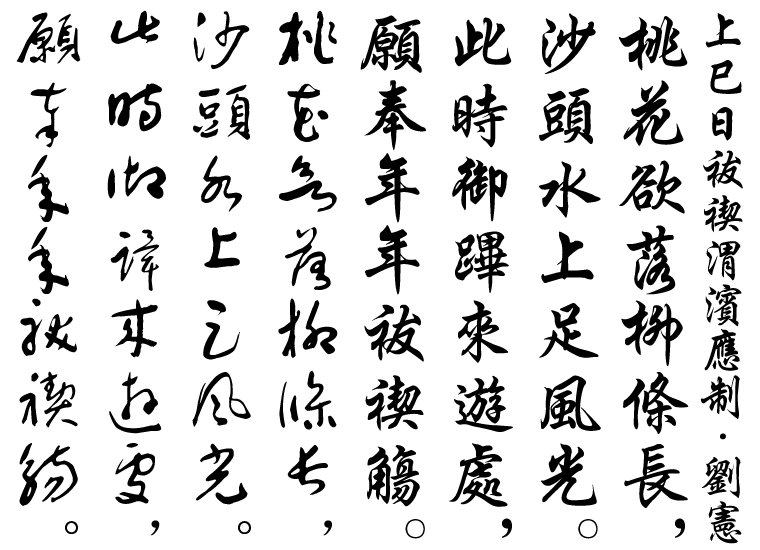 上巳日祓禊渭濱應制·劉憲
桃花欲落柳條長，
沙頭水上足風光。
此時御蹕來遊處，
願奉年年祓禊觴。
桃花欲落柳條長，
沙頭水上足風光。
此時御蹕來遊處，
願奉年年祓禊觴。